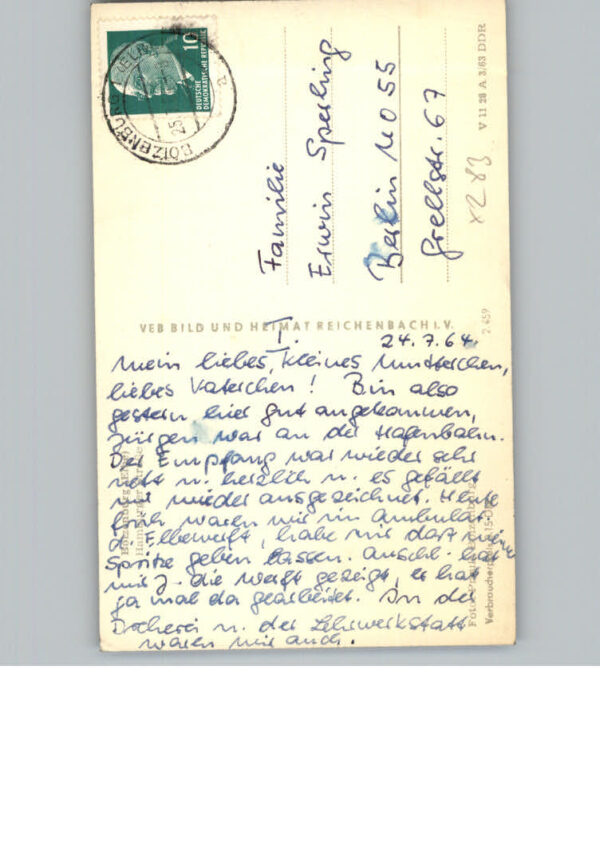 BOIZENBURG (ELBE)
25.
a
10
DEUTSCHE
DEMOKRATISCHE REPUBLIK
Familie
Erwin Sperling
Berlin NO 55
Grellstr. 67
V 11 28 A 3/63 DDR
x2 83
VEB BILD UND HEIMAT REICHENBACH I. V.
2 459
I.
24.7.64.
Mein liebes, kleines Mutterchen,
liebes Vaterchen! Bin also
gestern hier gut angekommen,
Jürgen war an der Hafenbahn.
Der Empfang war wieder sehr
nett u. herzlich u. es gefällt
mir wieder ausgezeichnet. Heute
früh waren wir im Ambulat.
d. Elbewerft, habe mir dort meine
Spritze geben lassen. Anschl. hat
mir J. die Werft gezeigt, er hat
ja mal da gearbeitet. In der
Dreherei u. der Lehrwerkstatt
waren wir auch.
Boizenburg (Elbe)
Hamburger Straße
Foto:
Verbraucherpreis